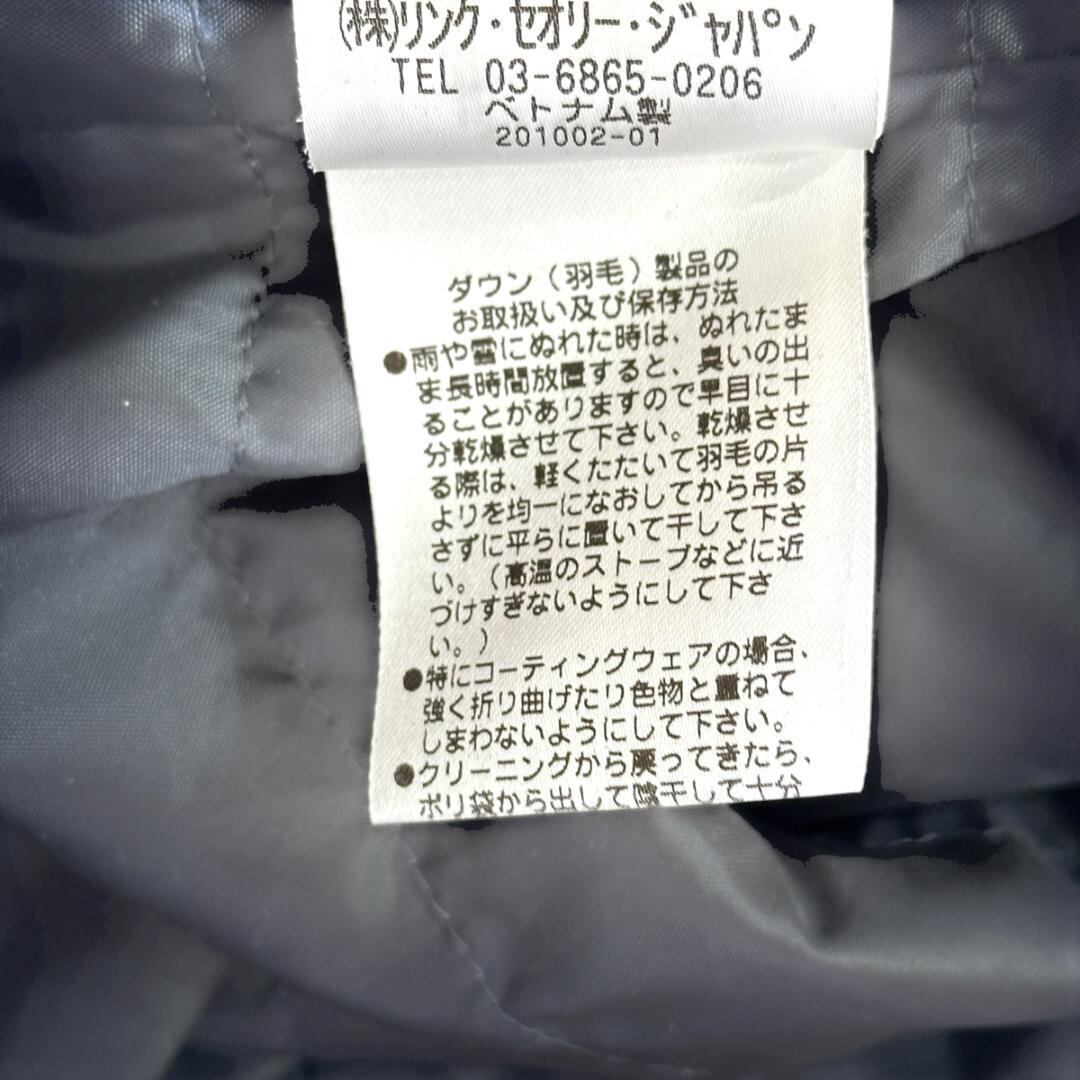 (株)リンク・セオリー・ジャパン
TEL 03-6865-0206
ベトナム製
201002-01
ダウン（羽毛）製品の
お取扱い及び保存方法
●雨や雪にぬれた時は、ぬれたま
ま長時間放置すると、臭いの出
ることがありますので早目に十
分乾燥させて下さい。乾燥させ
る際は、軽くたたいて羽毛の片
よりを均一になおしてから吊る
さずに平らに置いて干して下さ
い。（高温のストーブなどに近
づけすぎないようにして下さ
い。）
●特にコーティングウェアの場合、
強く折り曲げたり色物と重ねて
しまわないようにして下さい。
●クリーニングから戻ってきたら、
ポリ袋から出して陰干して十分